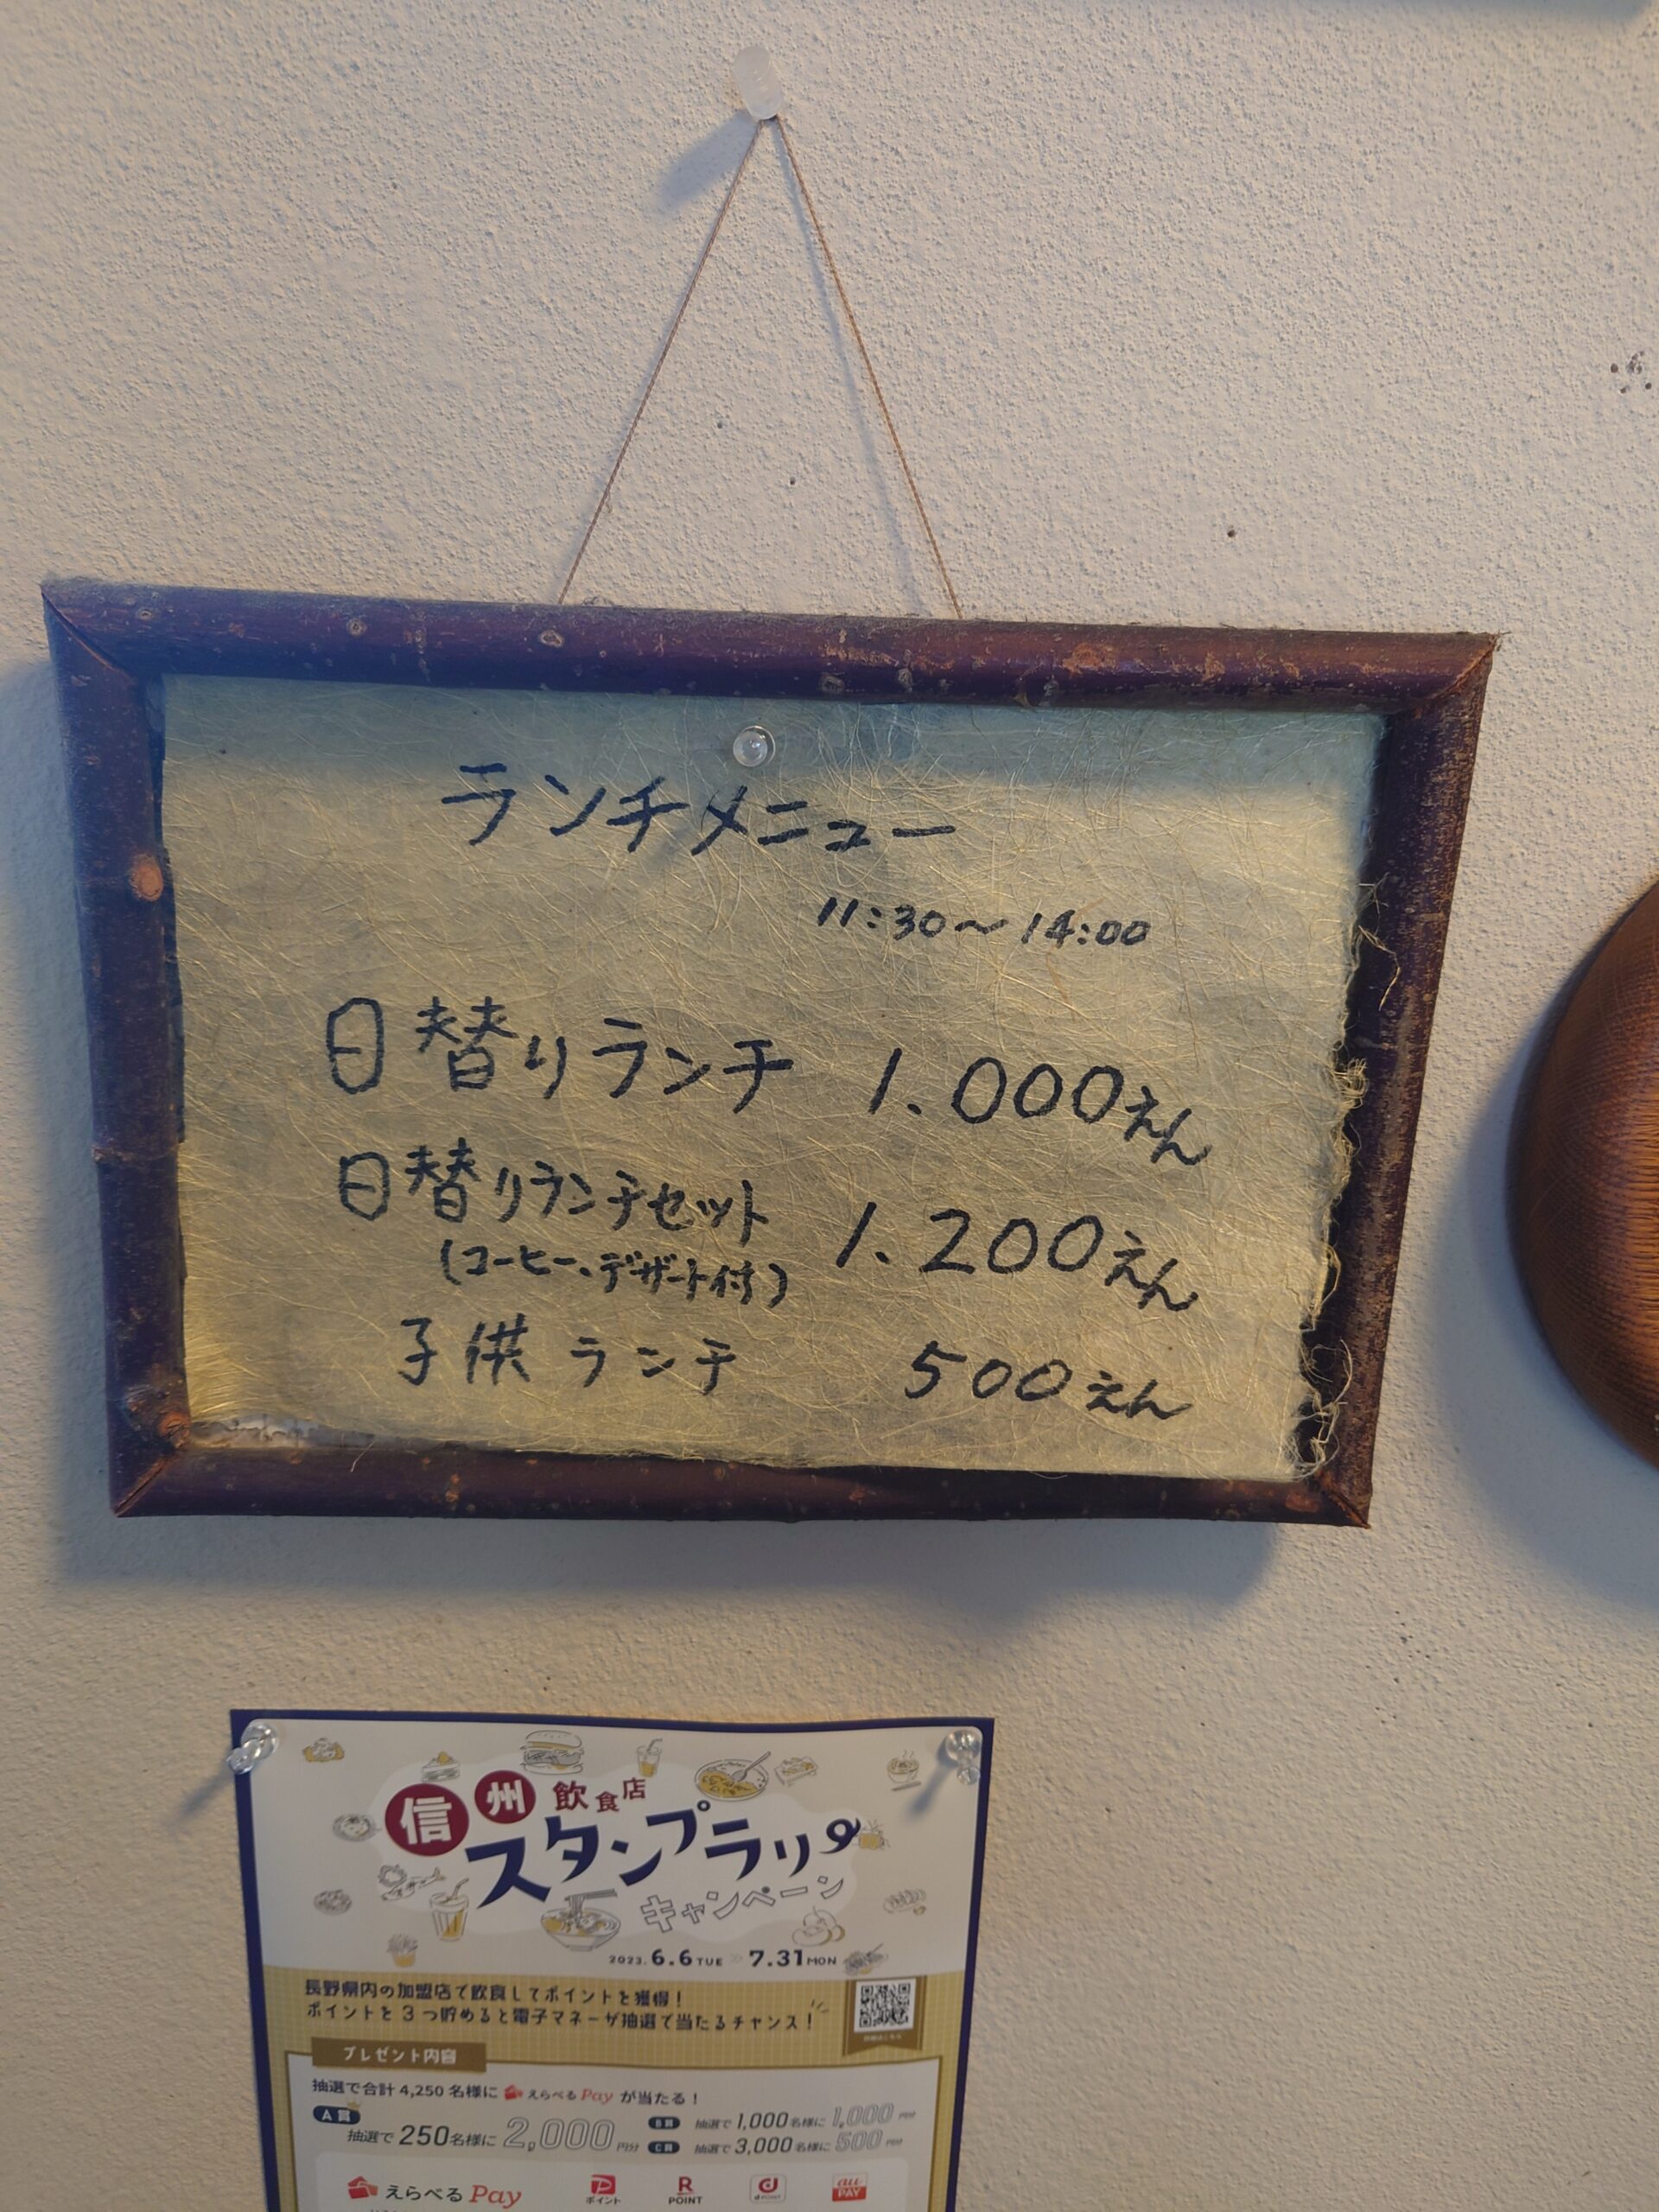 ランチメニュー
11:30～14:00
日替りランチ 1.000えん
日替りランチセット 1.200えん
(コーヒー、デザート付)
子供ランチ 500えん
信州飲食店
スタンプラリー
キャンペーン
2023.6.6TUE 7.31MON
長野県内の加盟店で飲食してポイントを獲得!
ポイントを3つ貯めると電子マネーが抽選で当たるチャンス!
プレゼント内容
抽選で合計4,250名様に えらべるPay が当たる!
A賞 抽選で250名様に2,000円分
B賞 抽選で1,000名様に1,000円分
C賞 抽選で3,000名様に500円分
えらべるPay
P ポイント
R POINT
d POINT
au PAY